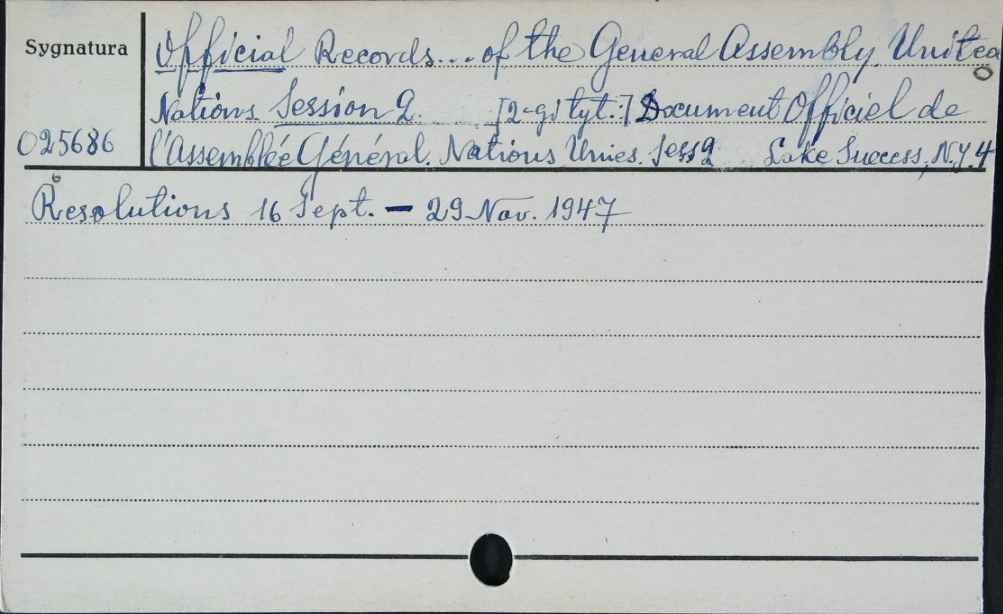 Sygnatura
Official Records... of the General Assembly. United
Nations. Session 2. [2-gi tyt.:] Document Officiel de
025686
l'Assemblée Général. Nations Unies. Sess 2 Lake Success, N.Y 4
Resolutions 16 Sept. — 29 Nov. 1947